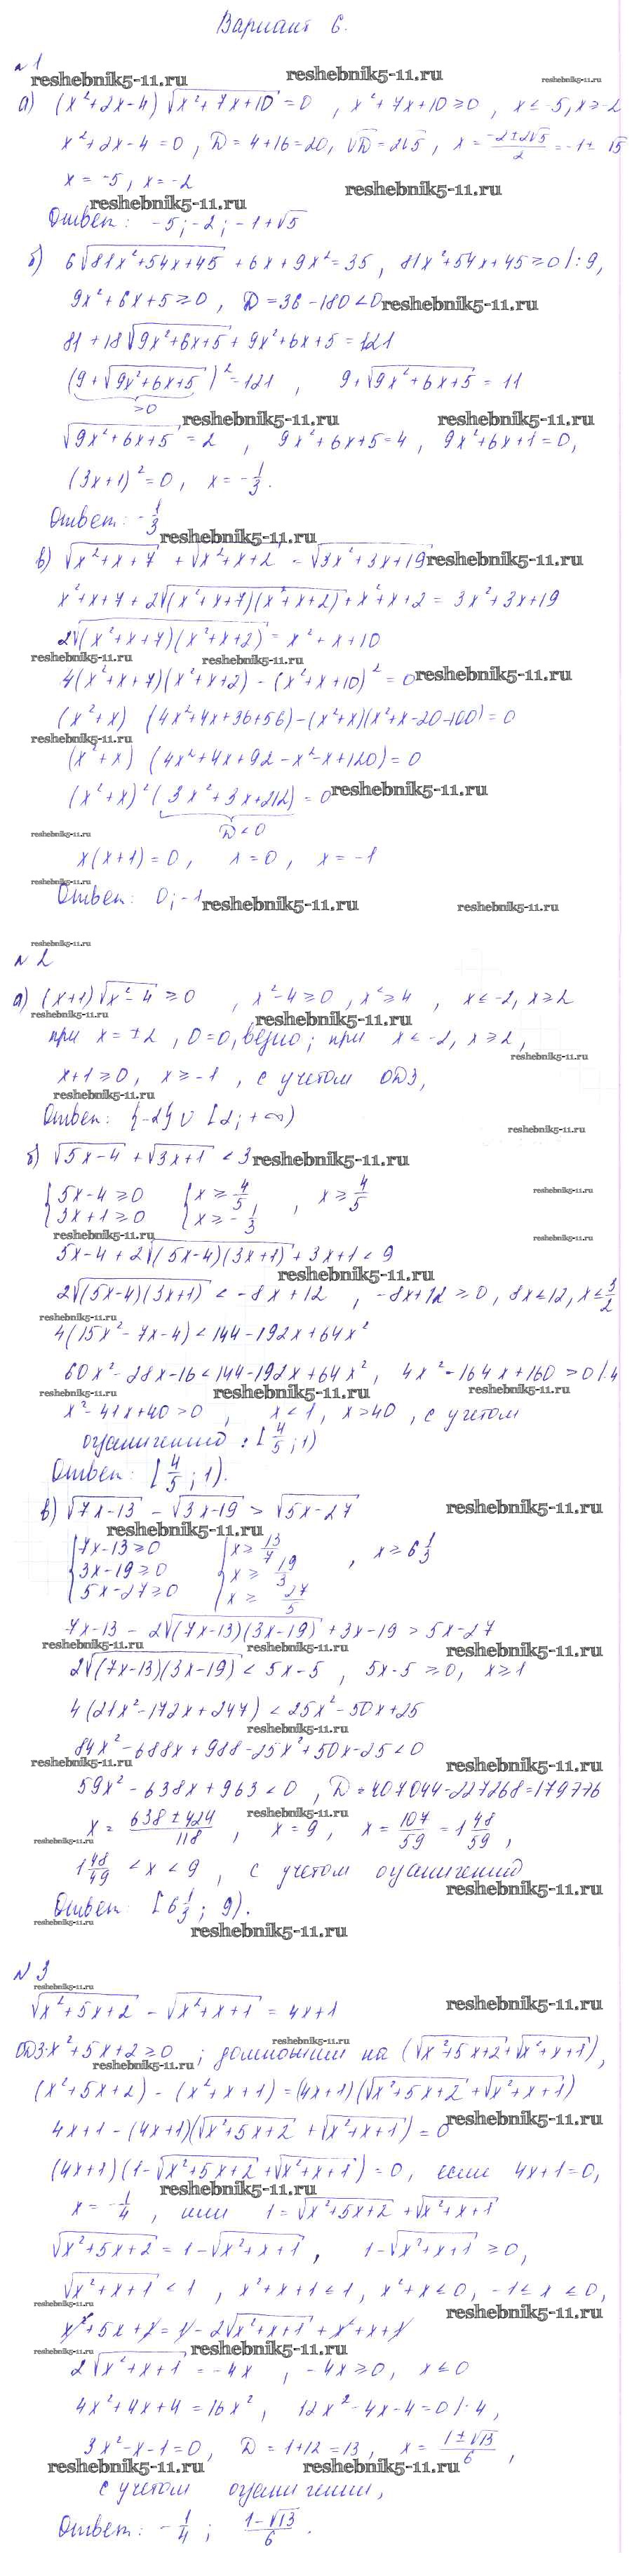 Вариант 6.
№1
reshebnik5-11.ru reshebnik5-11.ru reshebnik5-11.ru
а) (x²+2x-4)√(x²+7x+10) = 0 , x²+7x+10 ≥ 0 , x ≤ -5, x ≥ -2
x²+2x-4 = 0 , D = 4+16 = 20, √D = 2√5 , x = (-2±2√5)/2 = -1± √5
x = -5 , x = -2
reshebnik5-11.ru reshebnik5-11.ru
Ответ: -5; -2; -1+√5
б) 6√(81x²+54x+45) + 6x + 9x² = 35 , 81x²+54x+45 ≥ 0 /: 9,
9x²+6x+5 ≥ 0 , D = 36-180 < 0 reshebnik5-11.ru
81 + 18√(9x²+6x+5) + 9x²+6x+5 = 121
(9+√(9x²+6x+5))² = 121 , 9+√(9x²+6x+5) = 11
≥0
reshebnik5-11.ru reshebnik5-11.ru
√(9x²+6x+5) = 2 , 9x²+6x+5 = 4 , 9x²+6x+1 = 0,
(3x+1)² = 0 , x = -1/3.
Ответ: -1/3
reshebnik5-11.ru
в) √(x²+x+7) + √(x²+x+2) = √(3x²+3x+19) reshebnik5-11.ru
x²+x+7 + 2√((x²+x+7)(x²+x+2)) + x²+x+2 = 3x²+3x+19
2√((x²+x+7)(x²+x+2)) = x²+x+10
reshebnik5-11.ru reshebnik5-11.ru
4(x²+x+7)(x²+x+2) - (x²+x+10)² = 0 reshebnik5-11.ru
(x²+x) (4x²+4x+36+56) - (x²+x)(x²+x-20-100) = 0
reshebnik5-11.ru
(x²+x) (4x²+4x+92-x²-x+120) = 0
(x²+x)²(3x²+3x+212) = 0 reshebnik5-11.ru
D<0
reshebnik5-11.ru
x(x+1) = 0 , x = 0 , x = -1
reshebnik5-11.ru
Ответ: 0; -1 reshebnik5-11.ru reshebnik5-11.ru
reshebnik5-11.ru
№2
а) (x+1)√(x²-4) ≥ 0 , x²-4 ≥ 0 , x² ≥ 4 , x ≤ -2, x ≥ 2
reshebnik5-11.ru reshebnik5-11.ru
при x = ±2 , 0=0, верно; при x ≤ -2, x ≥ 2,
reshebnik5-11.ru
x+1 ≥ 0, x ≥ -1 , с учетом ОДЗ,
reshebnik5-11.ru
Ответ: {-2} ∪ [2; +∞)
reshebnik5-11.ru
б) √(5x-4) + √(3x+1) < 3 reshebnik5-11.ru
{5x-4 ≥ 0 {x ≥ 4/5 , x ≥ 4/5 reshebnik5-11.ru
{3x+1 ≥ 0 {x ≥ -1/3
reshebnik5-11.ru reshebnik5-11.ru
5x-4 + 2√((5x-4)(3x+1)) + 3x+1 < 9
reshebnik5-11.ru
2√((5x-4)(3x+1)) < -8x+12 , -8x+12 ≥ 0 , 8x ≤ 12, x ≤ 3/2
reshebnik5-11.ru
4(15x²-7x-4) < 144-192x+64x²
60x²-28x-16 < 144-192x+64x² , 4x²-164x+160 > 0 /:4
reshebnik5-11.ru reshebnik5-11.ru reshebnik5-11.ru
x²-41x+40 > 0 , x < 1 , x > 40 , с учетом
ограничений: [4/5; 1)
Ответ: [4/5; 1).
в) √(7x-13) - √(3x-19) > √(5x-27) reshebnik5-11.ru
reshebnik5-11.ru
{7x-13 ≥ 0 {x ≥ 13/7 , x ≥ 6 1/3
{3x-19 ≥ 0 {x ≥ 19/3
{5x-27 ≥ 0 {x ≥ 27/5
7x-13 - 2√((7x-13)(3x-19)) + 3x-19 > 5x-27
reshebnik5-11.ru reshebnik5-11.ru reshebnik5-11.ru
2√((7x-13)(3x-19)) < 5x-5 , 5x-5 ≥ 0, x ≥ 1
4(21x²-172x+247) < 25x²-50x+25
reshebnik5-11.ru
84x²-688x+988-25x²+50x-25 < 0
reshebnik5-11.ru reshebnik5-11.ru
59x²-638x+963 < 0 , D = 407044-227268 = 179776
x = (638±424)/118 , x = 9 , x = 107/59 = 1 48/59 ,
reshebnik5-11.ru reshebnik5-11.ru
1 48/49 < x < 9 , с учетом ограничений
reshebnik5-11.ru
Ответ: [6 1/3; 9).
reshebnik5-11.ru reshebnik5-11.ru
№3
reshebnik5-11.ru
√(x²+5x+2) - √(x²+x+1) = 4x+1 reshebnik5-11.ru
ОДЗ: x²+5x+2 ≥ 0 ; домножим на (√(x²+5x+2)+√(x²+x+1)),
reshebnik5-11.ru reshebnik5-11.ru
(x²+5x+2) - (x²+x+1) = (4x+1)(√(x²+5x+2)+√(x²+x+1))
reshebnik5-11.ru
4x+1 - (4x+1)(√(x²+5x+2) + √(x²+x+1)) = 0
(4x+1)(1-√(x²+5x+2)+√(x²+x+1)) = 0, если 4x+1 = 0,
reshebnik5-11.ru
x = -1/4 , или 1 = √(x²+5x+2) + √(x²+x+1)
√(x²+5x+2) = 1-√(x²+x+1) , 1-√(x²+x+1) ≥ 0,
√(x²+x+1) < 1 , x²+x+1 ≤ 1 , x²+x ≤ 0, -1 ≤ x ≤ 0,
reshebnik5-11.ru reshebnik5-11.ru
x²+5x+2 = 1 - 2√(x²+x+1) + x²+x+1
reshebnik5-11.ru reshebnik5-11.ru
2√(x²+x+1) = -4x , -4x ≥ 0, x ≤ 0
4x²+4x+4 = 16x² , 12x²-4x-4 = 0 /:4,
3x²-x-1 = 0, D = 1+12 = 13 , x = (1±√13)/6 ,
reshebnik5-11.ru reshebnik5-11.ru
с учетом ограничений,
Ответ: -1/4 ; (1-√13)/6 .